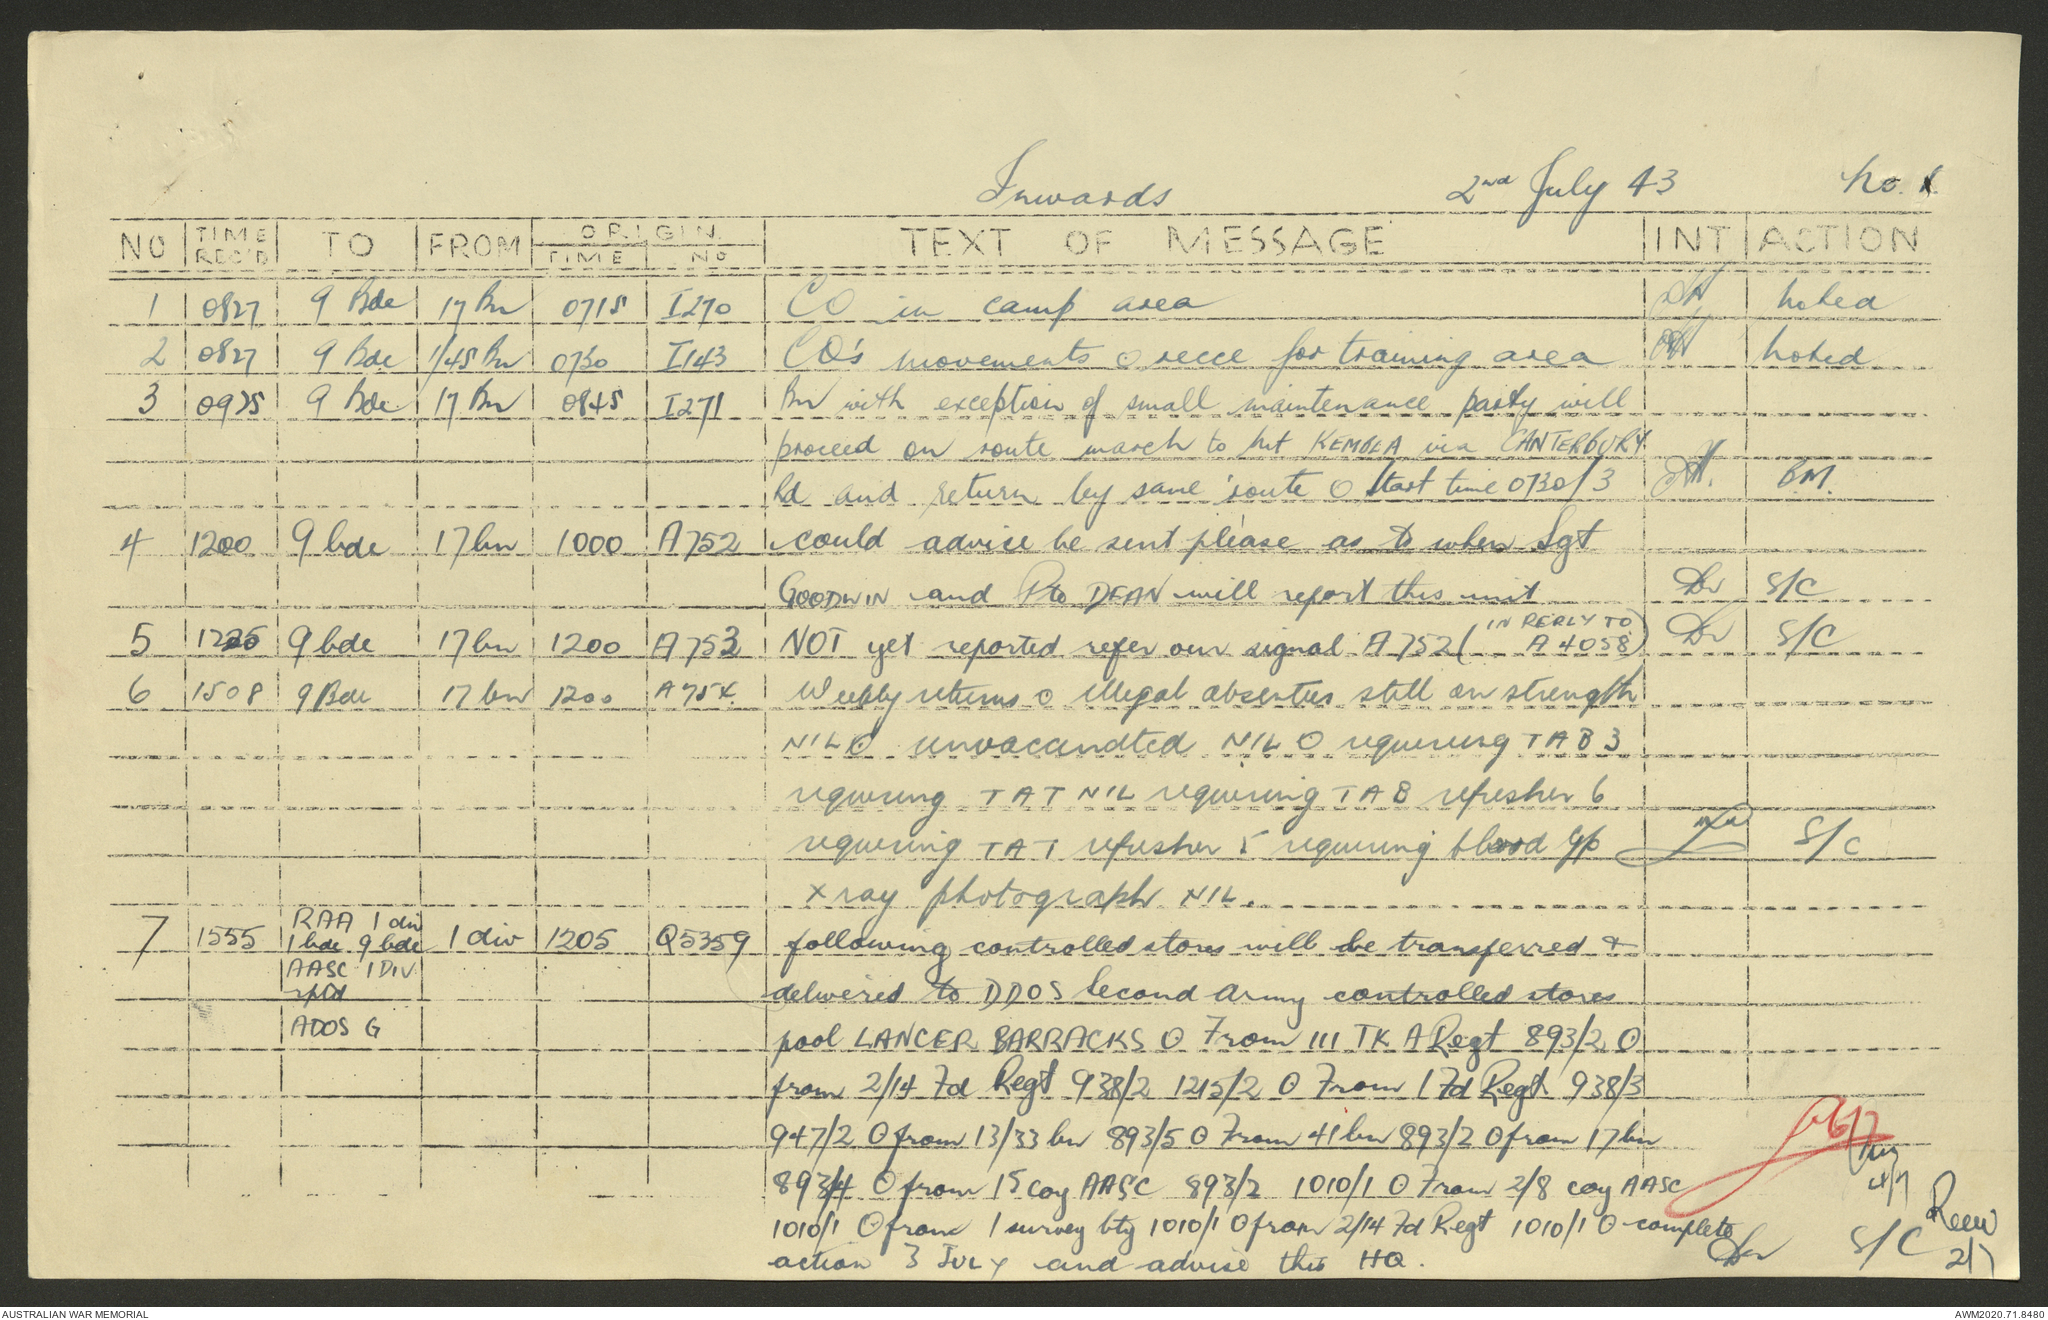 Inwards 2nd July 43 No. 1.
NO TIME REC'D TO FROM ORIGIN TIME NO TEXT OF MESSAGE INT ACTION
1 0827 9 Bde 17 Bn 0715 I270 CO in camp area noted
2 0827 9 Bde 1/45 Bn 0730 I143 CO's movements O recce for training area noted
3 0925 9 Bde 17 Bn 0845 I271 Bn with exception of small maintenance party will
proceed on route march to Mt KEMBLA via CANTERBURY
Rd and return by same route O Start time 0730/3 BM.
4 1200 9 bde 17 bn 1000 A752 could advice be sent please as to when Sgt
GOODWIN and Pte DEAN will report this unit S/C
5 1225 9 bde 17 bn 1200 A753 NOT yet reported refer our signal A752 (IN REPLY TO A4058) S/C
6 1508 9 Bde 17 bn 1200 A754. Weekly returns O illegal absentees still on strength
NIL O unvacandted NIL O requiring TAB 3
requiring TAT NIL requiring TAB refresher 6
requiring TAT refresher 5 requiring blood gp S/C
Xray photograph NIL.
7 1555 RAA 1 div 1 bde 9 bde 1 div 1205 Q5359 following controlled stores will be transferred &
AASC 1 DIV rptd delivered to DDOS Second Army controlled stores
ADOS G pool LANCER BARRACKS O From 111 TK A Regt 893/2 O
from 2/14 Fd Regt 938/2 1215/2 O From 1 Fd Regt 938/3
947/2 O from 13/33 bn 893/5 O From 41 bn 893/2 O from 17 bn
893/4 O from 15 coy AASC 893/2 1010/1 O From 2/8 coy AASC
4/7
1010/1 O from 1 survey bty 1010/1 O from 2/14 Fd Regt 1010/1 O complete
action 3 JULY and advise this HQ. S/C 2/7
AUSTRALIAN WAR MEMORIAL AWM2020.71.8480